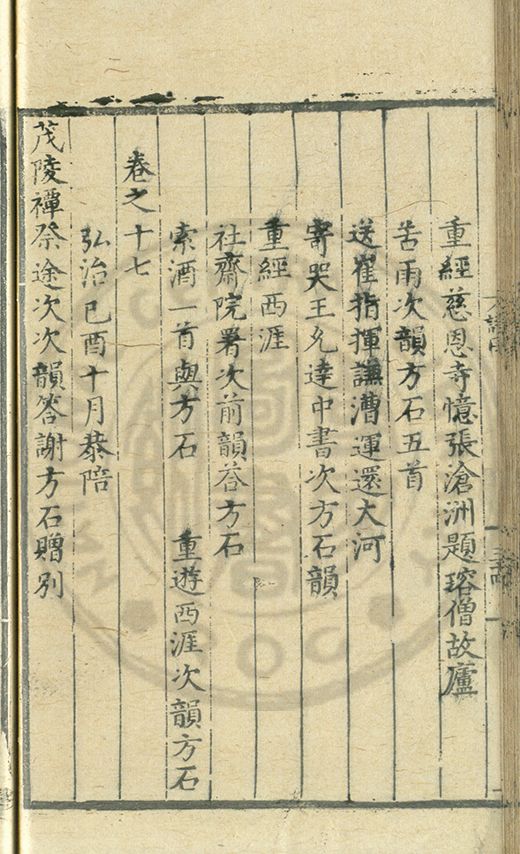 重經慈恩寺憶張滄洲題瑢僧故廬
苦雨次韻方石五首
送崔指揮謙漕運還大河
寄哭王允達中書次方石韻
重經西涯
社齋院署次前韻答方石
索酒一首與方石　重遊西涯次韻方石
卷之十七
弘治己酉十月恭陪
茂陵禫祭途次次韻答謝方石贈別